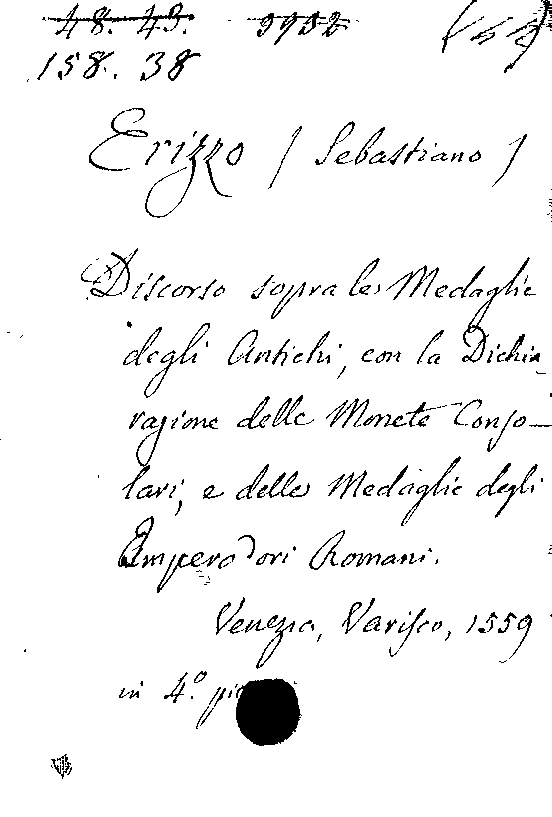 48. 43. 3932
158. 38
Erizzo / Sebastiano /
Discorso sopra le Medaglie
degli Antichi, con la Dichia-
razione delle Monete Conso-
lari, e delle Medaglie degli
Imperadori Romani.
Venezia, Varisco, 1559
in 4.º